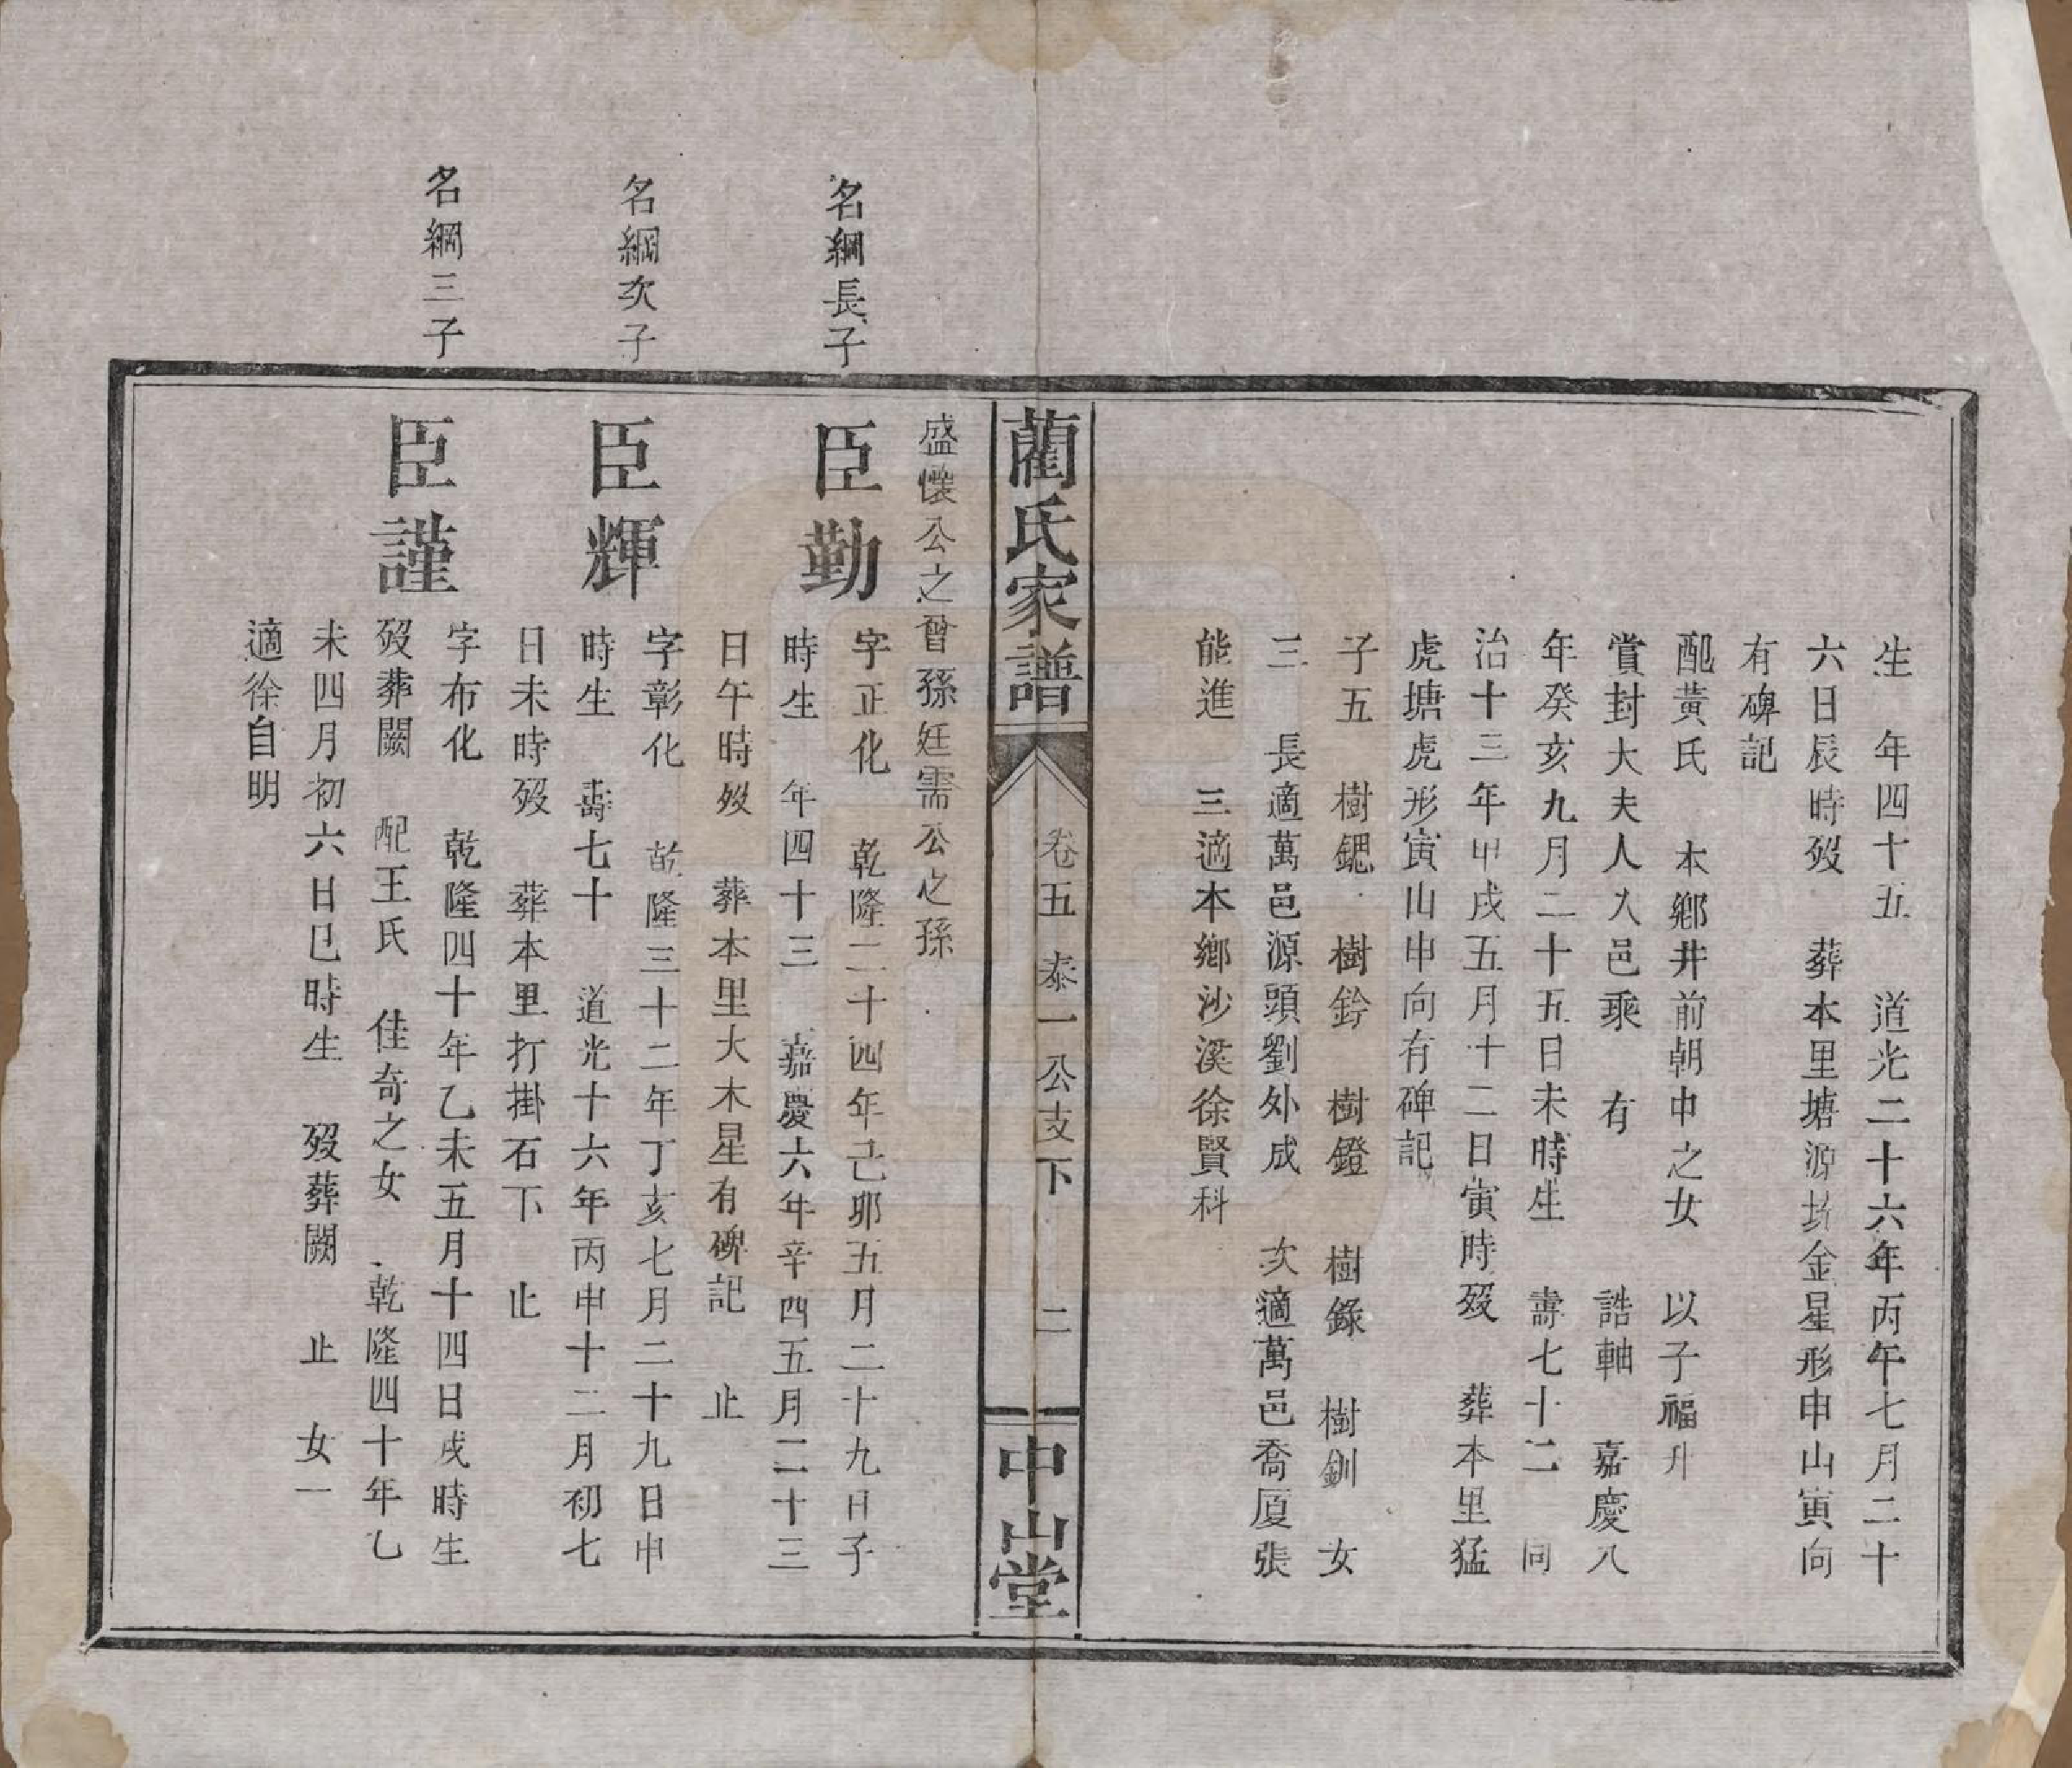 生　年四十五　道光二十六年丙午七月二十
六日辰時歿　葬本里塘源塝金星形申山寅向
有碑記
配黃氏　本鄉井前朝中之女　以子福升
賞封大夫人入邑乘　有　誥軸　嘉慶八
年癸亥九月二十五日未時生　壽七十二　同
治十三年甲戌五月十二日寅時歿　葬本里猛
虎塘虎形寅山申向有碑記
子五　樹鍶　樹鈐　樹鐙　樹錄　樹釧　女
三　長適萬邑源頭劉外成　次適萬邑喬厦張
能進　三適本鄉沙溪徐賢科
藺氏家譜　卷五　泰一公支下　二　中山堂
盛懷公之曾孫廷需公之孫
名綱長子
臣勤　字正化　乾隆二十四年己卯五月二十九日子
時生　年四十三　嘉慶六年辛四五月二十三
日午時歿　葬本里大木星有碑記　止
名綱次子
臣輝　字彰化　乾隆三十二年丁亥七月二十九日申
時生　壽七十　道光十六年丙申十二月初七
日未時歿　葬本里打掛石下　止
名綱三子
臣謹　字布化　乾隆四十年乙未五月十四日戌時生
歿葬闕　配王氏　佳奇之女　乾隆四十年乙
未四月初六日巳時生　歿葬闕　止　女一
適徐自明